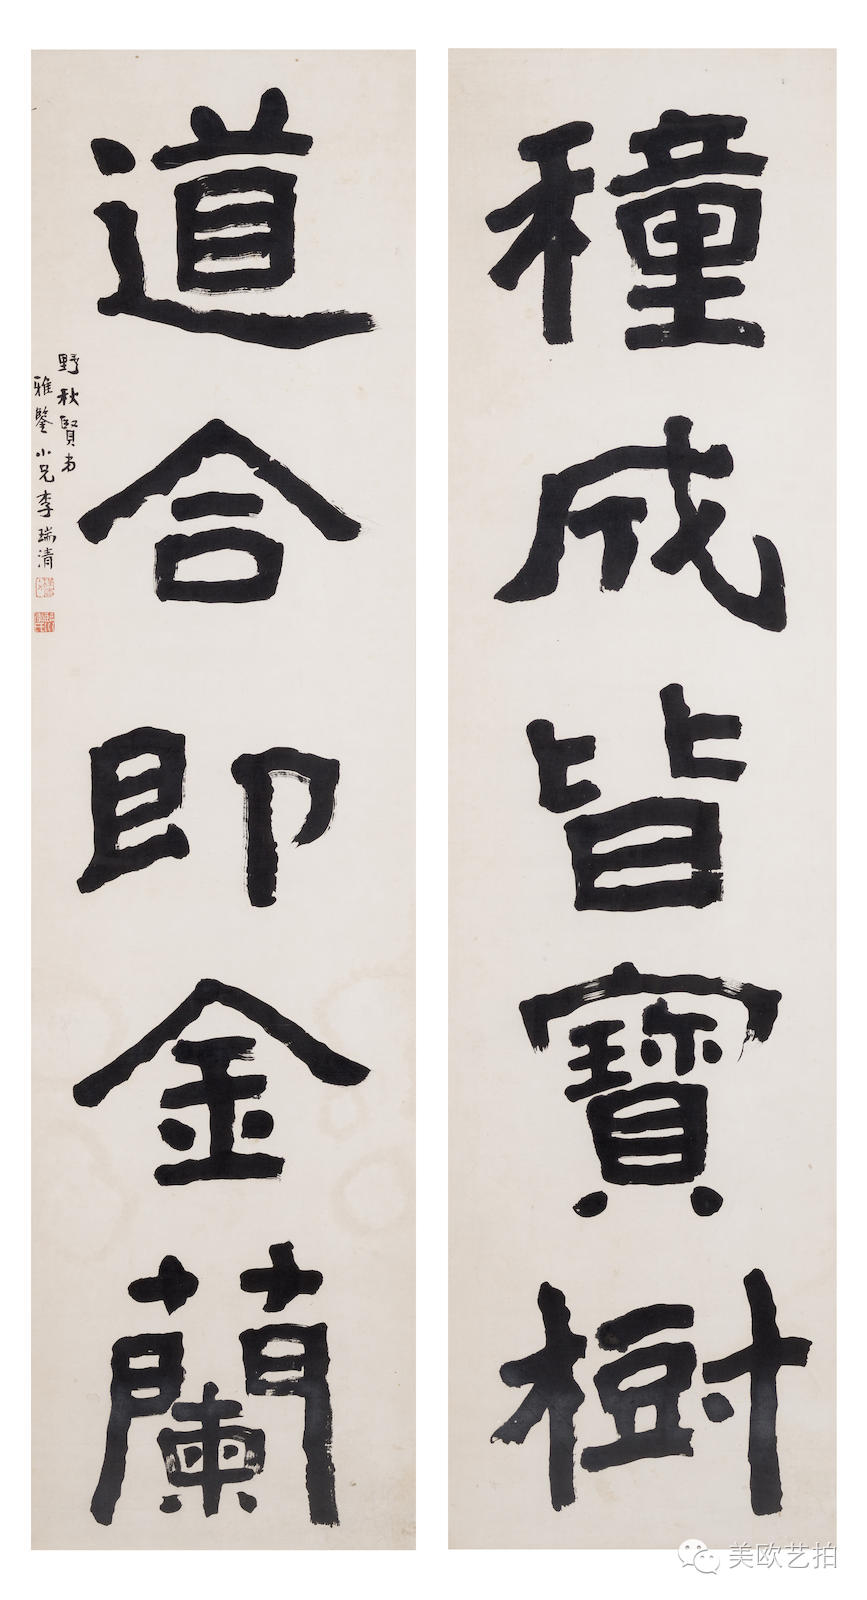 穜成皆寶樹
道合即金蘭
野秋賢弟
雅鑒小兄李瑞清
美欧艺拍